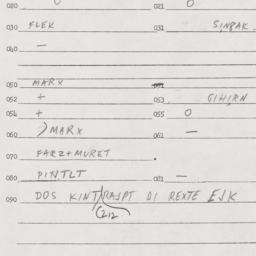 020 0 021 0
030 FLEK 031 SINPAK
040 —
050 MARX
052 + 053 GIHIRN
054 + 055 0
060 MARX 061 —
070 FARZ+MURET
080 PINTLT 081 —
090 DOS KINT RAJPT DI REXTE EJK
212